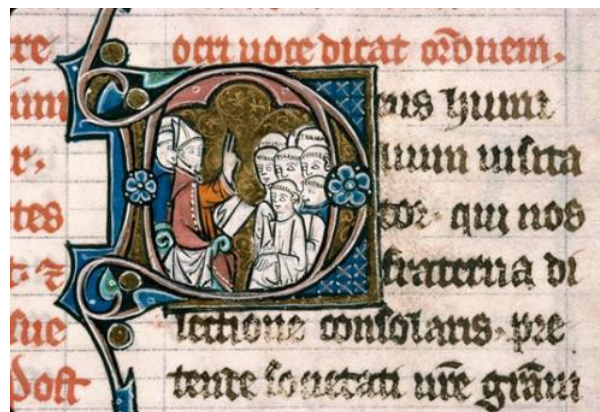 re
ocri uoce dicat ordinem.
um
Deus humi
r.
lium uisita
tes
tor. qui nos
fraterna di
sue
lectione consolaris. pre
dost
tente societati nre gram